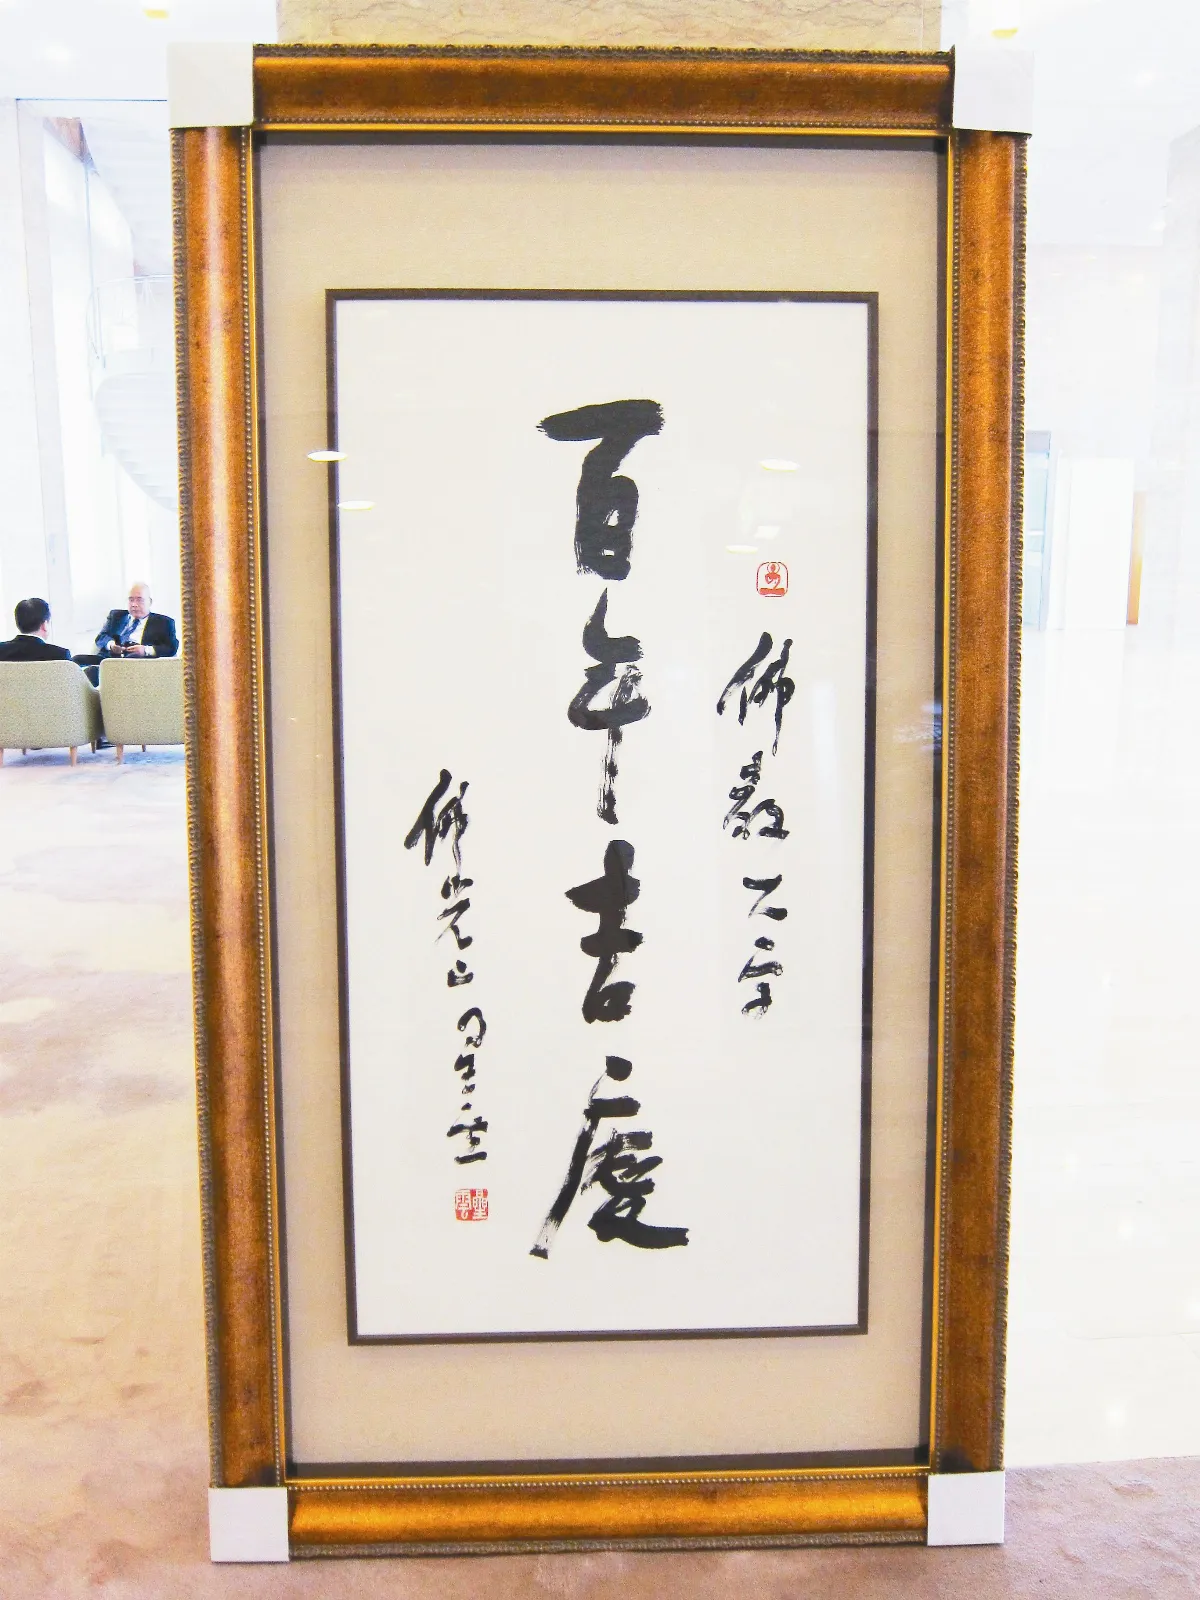 佛教大学
百年吉慶
佛光山星雲
星雲